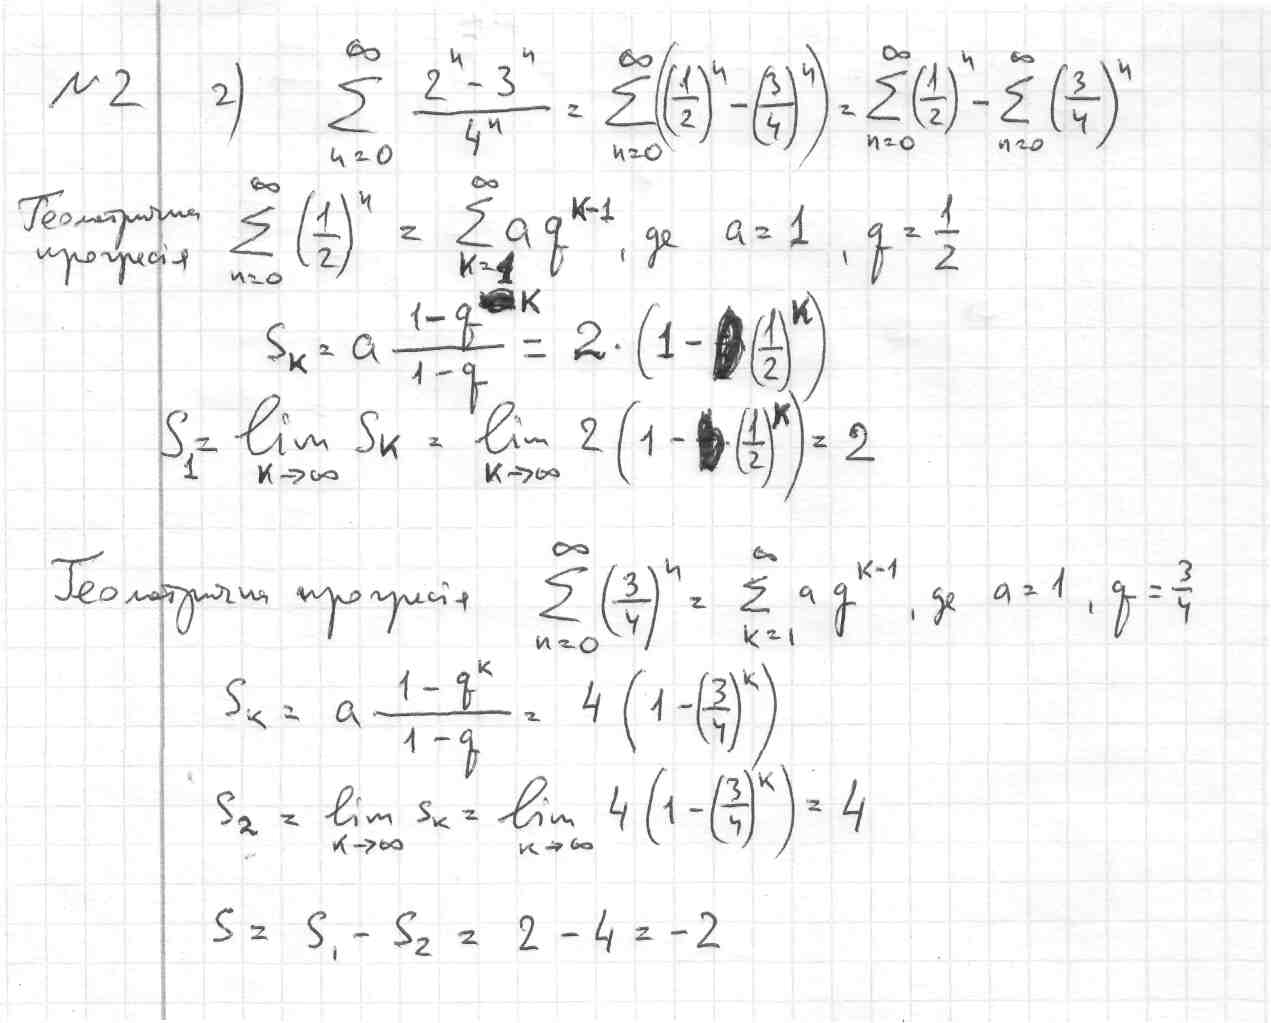 №2 г) \sum_{n=0}^{\infty} \frac{2^n - 3^n}{4^n} = \sum_{n=0}^{\infty} \left( \left(\frac{1}{2}\right)^n - \left(\frac{3}{4}\right)^n \right) = \sum_{n=0}^{\infty} \left(\frac{1}{2}\right)^n - \sum_{n=0}^{\infty} \left(\frac{3}{4}\right)^n
Геометрична прогресія \sum_{n=0}^{\infty} \left(\frac{1}{2}\right)^n = \sum_{k=1}^{\infty} a q^{k-1}, де a = 1, q = \frac{1}{2}
S_k = a \frac{1-q^k}{1-q} = 2 \cdot \left(1 - \left(\frac{1}{2}\right)^k\right)
S_1 = \lim_{k \to \infty} S_k = \lim_{k \to \infty} 2 \left(1 - \left(\frac{1}{2}\right)^k\right) = 2
Геометрична прогресія \sum_{n=0}^{\infty} \left(\frac{3}{4}\right)^n = \sum_{k=1}^{\infty} a q^{k-1}, де a = 1, q = \frac{3}{4}
S_k = a \frac{1-q^k}{1-q} = 4 \left(1 - \left(\frac{3}{4}\right)^k\right)
S_2 = \lim_{k \to \infty} S_k = \lim_{k \to \infty} 4 \left(1 - \left(\frac{3}{4}\right)^k\right) = 4
S = S_1 - S_2 = 2 - 4 = -2